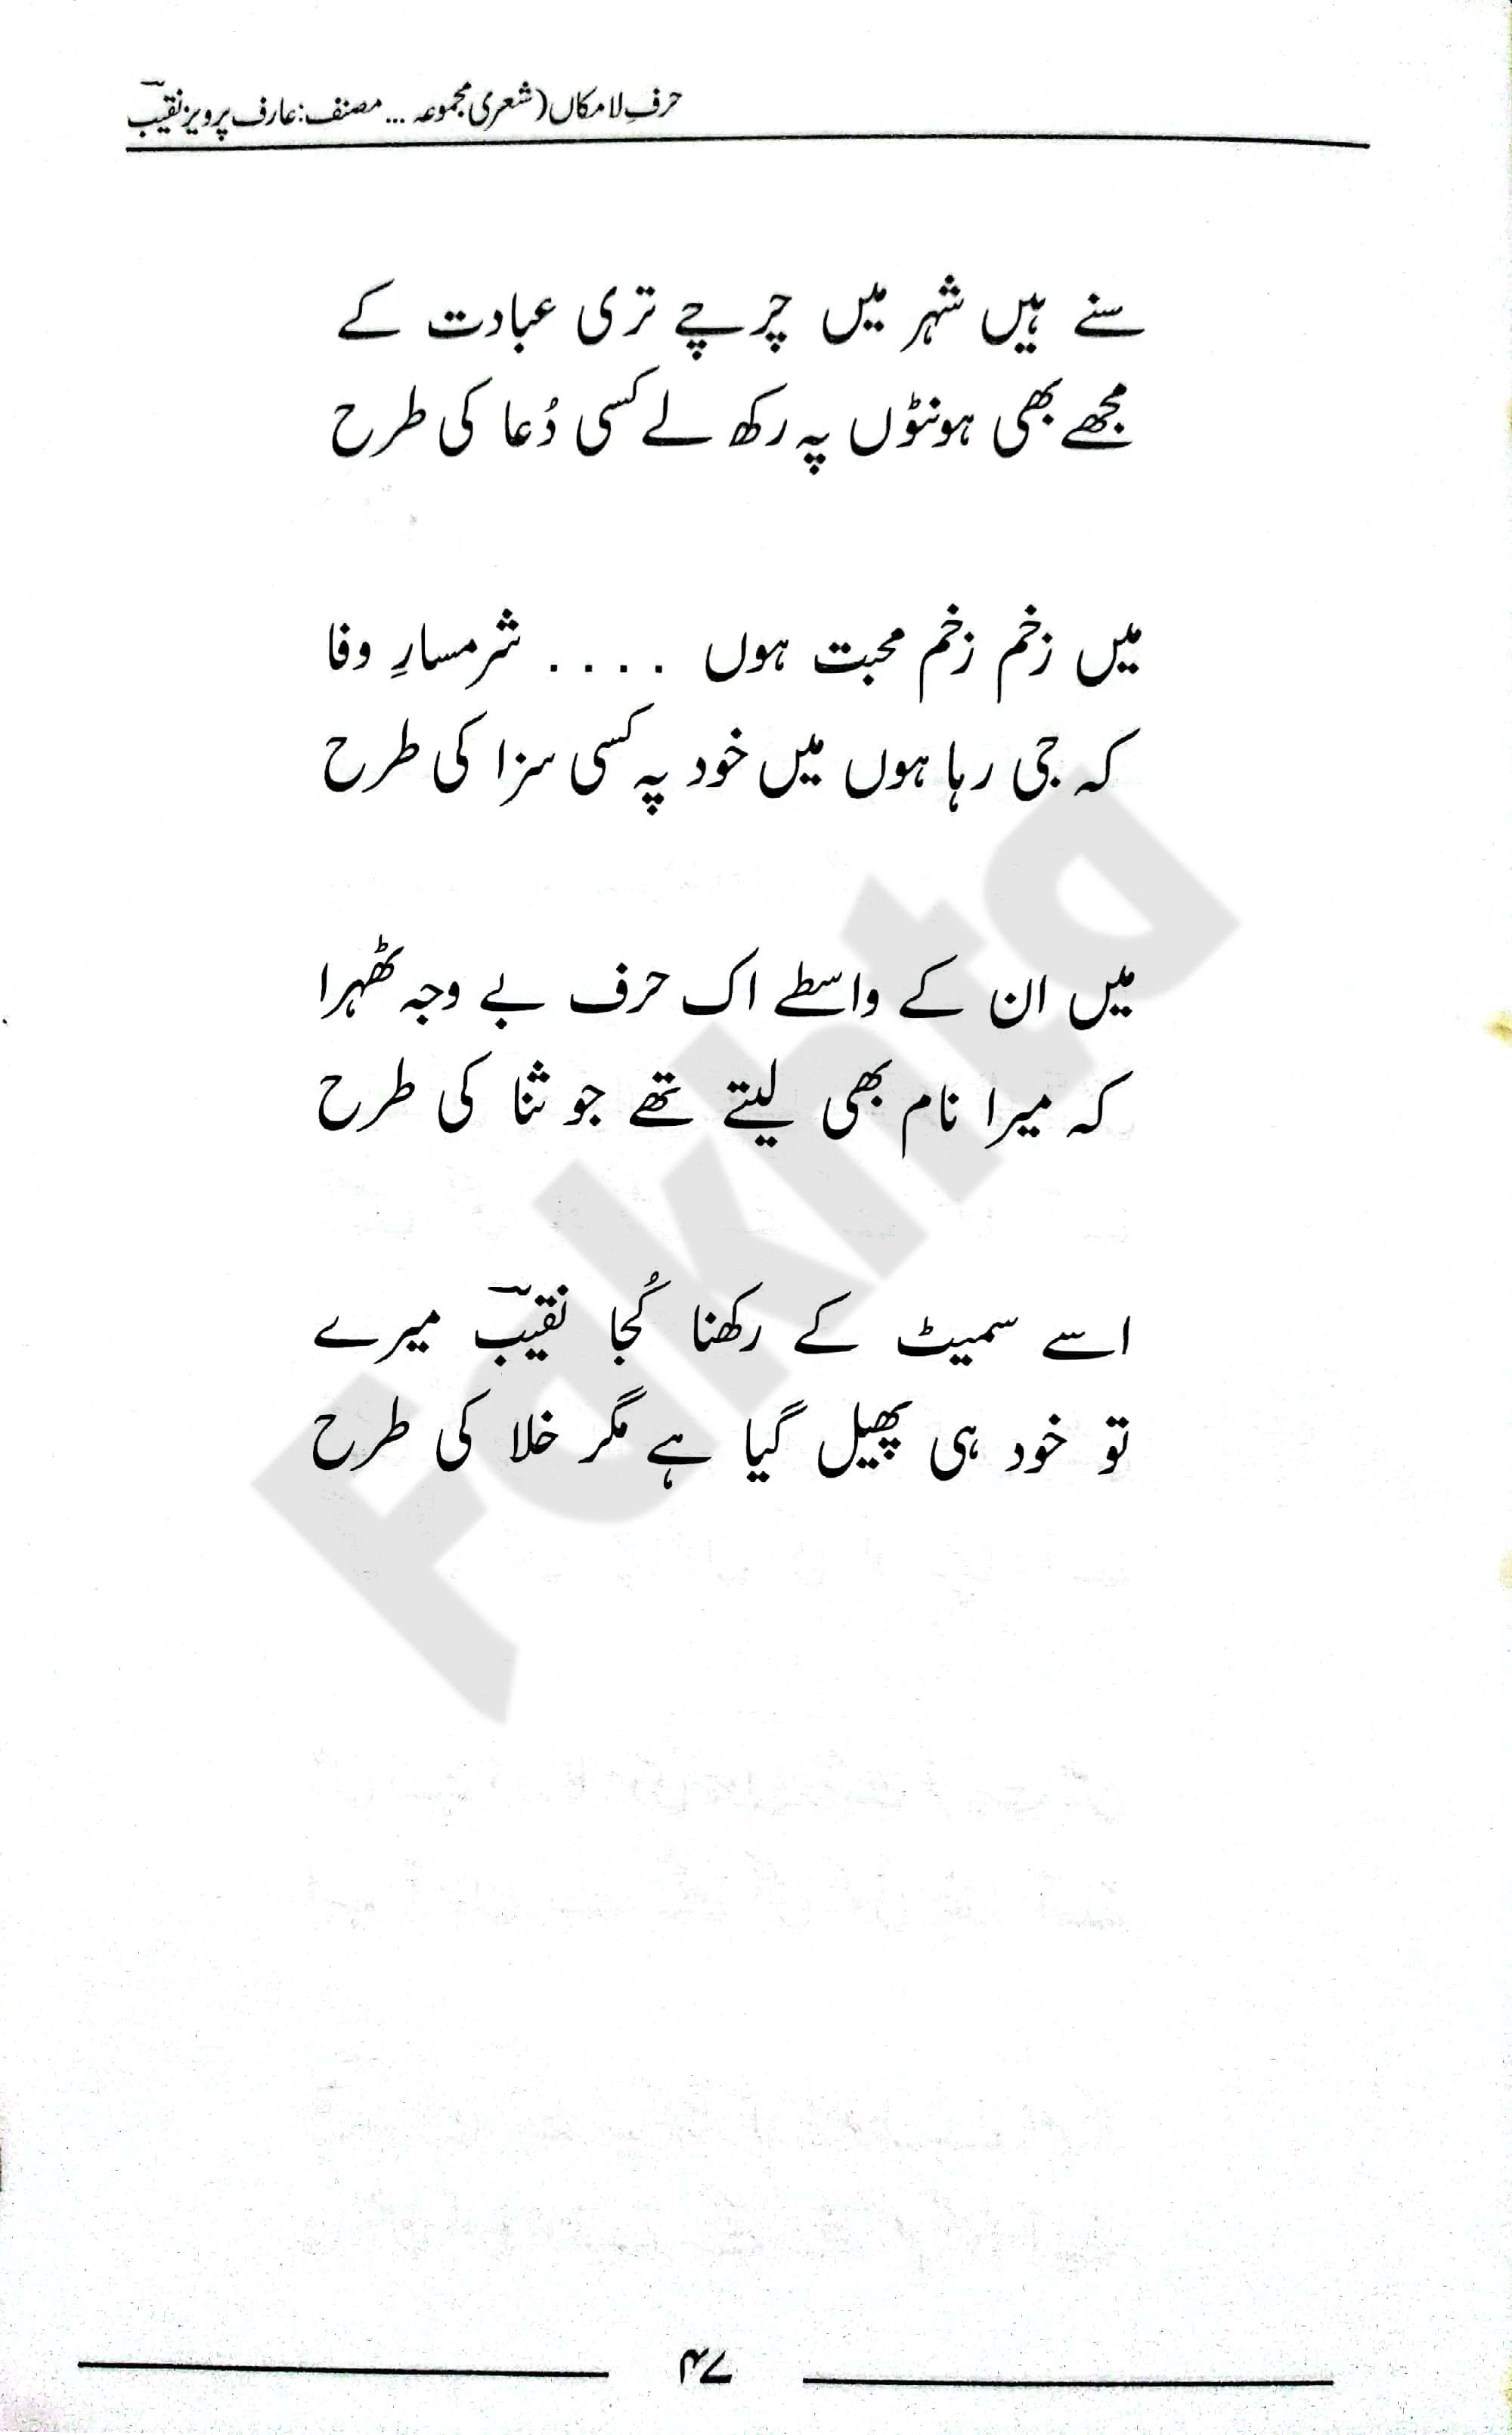 حرفِ لامکاں (شعری مجموعہ ... مصنف: عارف پرویز نقیبؔ
سنے ہیں شہر میں چرچے تری عبادت کے
مجھے بھی ہونٹوں پہ رکھ لے کسی دُعا کی طرح
میں زخم زخم محبت ہوں .... شرمسارِ وفا
کہ جی رہا ہوں میں خود پہ کسی سزا کی طرح
میں ان کے واسطے اک حرف بے وجہ ٹھہرا
کہ میرا نام بھی لیتے تھے جو ثنا کی طرح
اسے سمیٹ کے رکھنا کُجا نقیبؔ میرے
تو خود ہی پھیل گیا ہے مگر خلا کی طرح
Fakhta
۴۷